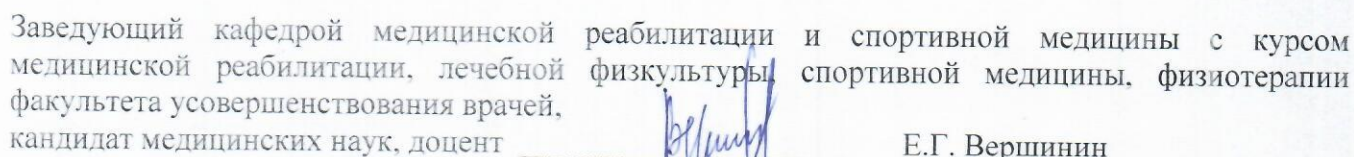 Заведующий кафедрой медицинской реабилитации и спортивной медицины с курсом
медицинской реабилитации, лечебной физкультуры, спортивной медицины, физиотерапии
факультета усовершенствования врачей,
кандидат медицинских наук, доцент Е.Г. Вершинин